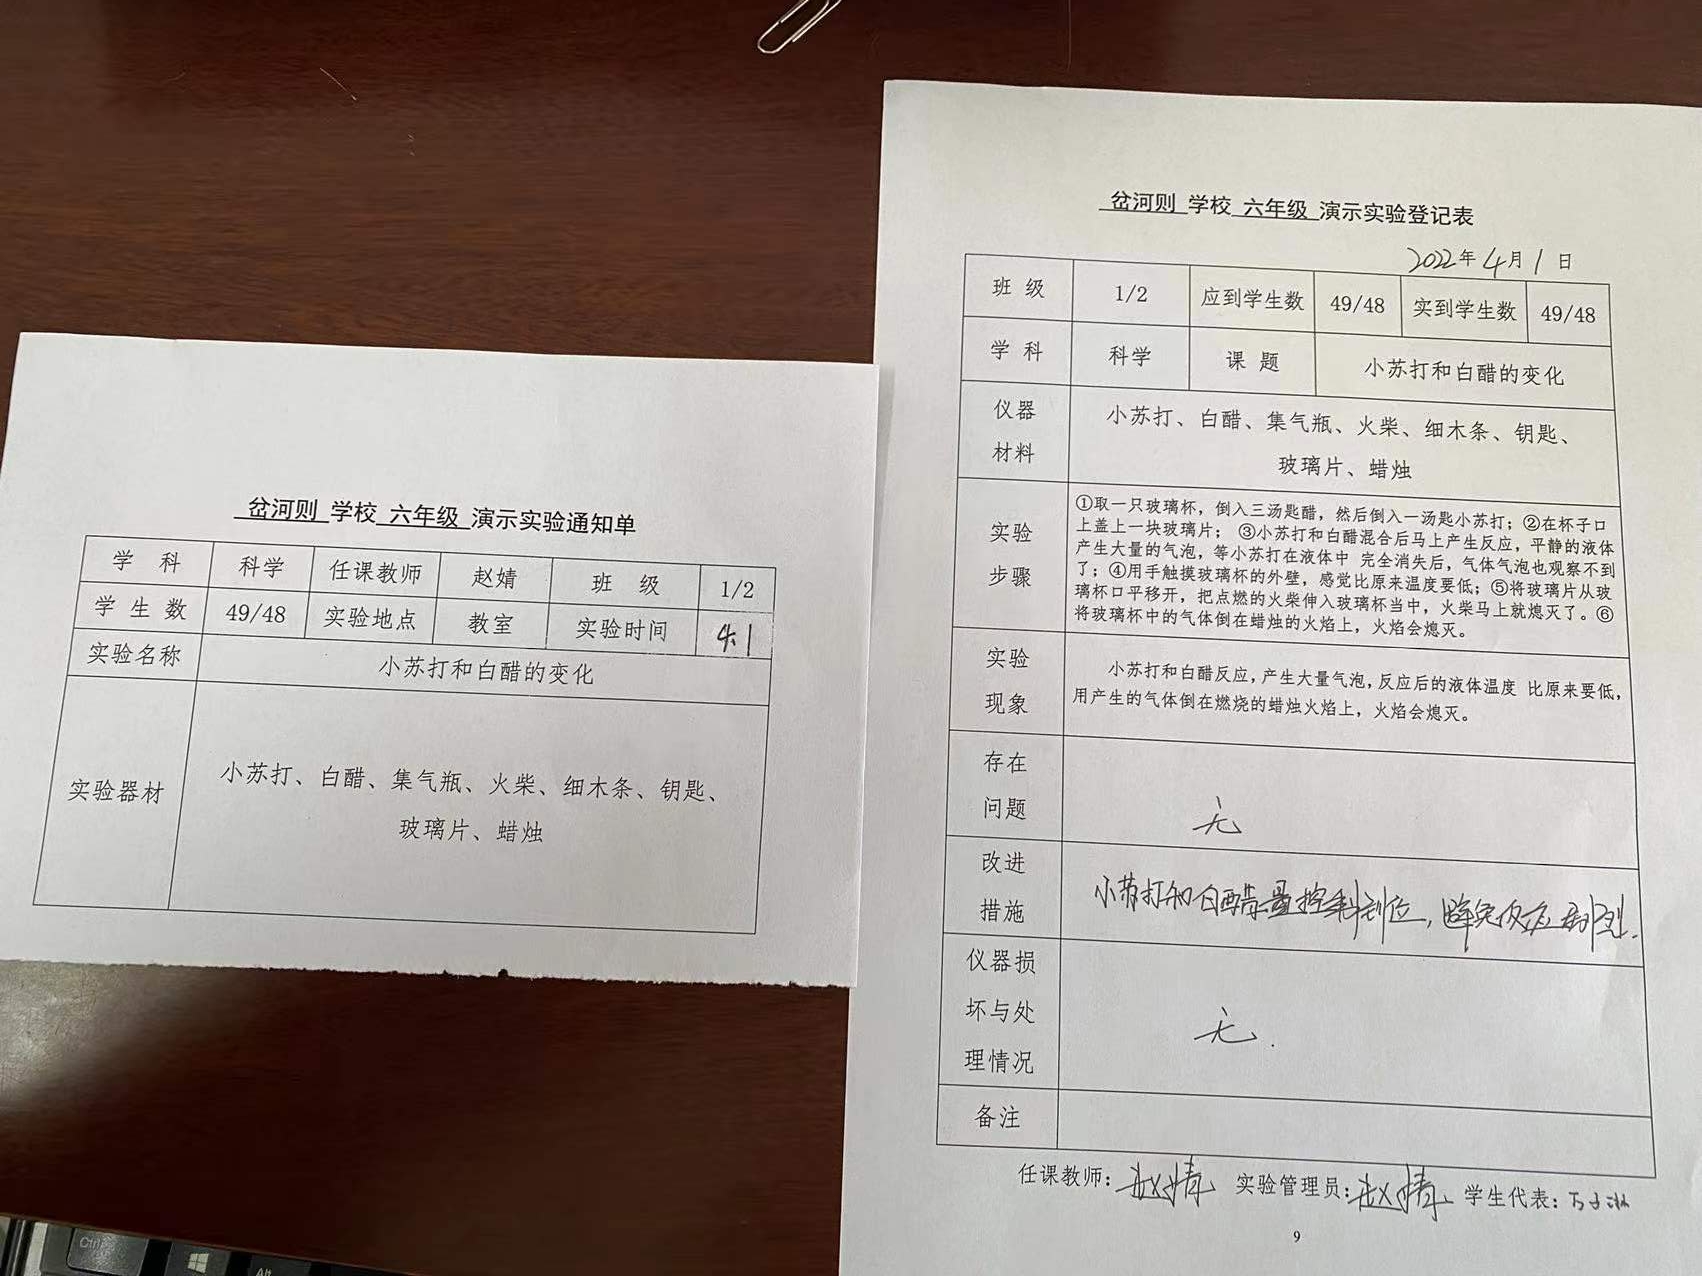 岔河则 学校 六年级 演示实验通知单
学 科 科学 任课教师 赵婧 班 级 1/2
学 生 数 49/48 实验地点 教室 实验时间 4.1
实验名称 小苏打和白醋的变化
实验器材 小苏打、白醋、集气瓶、火柴、细木条、钥匙、
玻璃片、蜡烛
岔河则 学校 六年级 演示实验登记表
2022年4月1日
班 级 1/2 应到学生数 49/48 实到学生数 49/48
学 科 科学 课 题 小苏打和白醋的变化
仪器
材料
小苏打、白醋、集气瓶、火柴、细木条、钥匙、
玻璃片、蜡烛
实验
步骤
①取一只玻璃杯，倒入三汤匙醋，然后倒入一汤匙小苏打；②在杯子口
上盖上一块玻璃片； ③小苏打和白醋混合后马上产生反应，平静的液体
产生大量的气泡，等小苏打在液体中 完全消失后，气体气泡也观察不到
了；④用手触摸玻璃杯的外壁，感觉比原来温度要低；⑤将玻璃片从玻
璃杯口平移开，把点燃的火柴伸入玻璃杯当中，火柴马上就熄灭了。⑥
将玻璃杯中的气体倒在蜡烛的火焰上，火焰会熄灭。
实验
现象
小苏打和白醋反应，产生大量气泡，反应后的液体温度 比原来要低，
用产生的气体倒在燃烧的蜡烛火焰上，火焰会熄灭。
存在
问题
无
改进
措施
小苏打和白醋量控制到位，避免反应剧烈.
仪器损
坏与处
理情况
无.
备注
任课教师：赵婧 实验管理员：赵婧 学生代表：
9
Ctrl
Alt